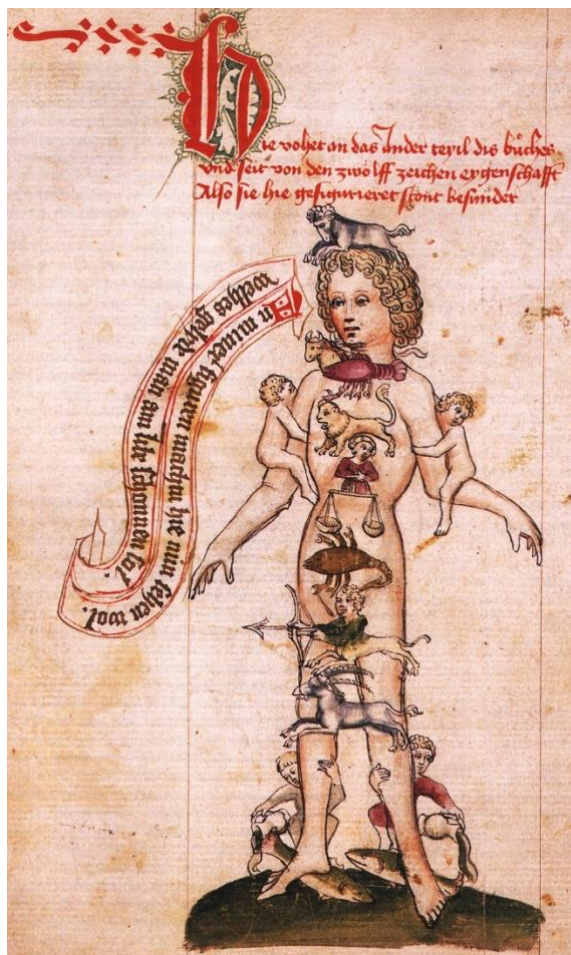 Hie vohet an das ander teyil dis bůches
Vnd seit von den zwölff zeichen eygenschafft
Also sie hie gefigurieret stont besunder
In miner figuren machtu hie nun sehen wol.
welhes gelide man an schonnen sol.